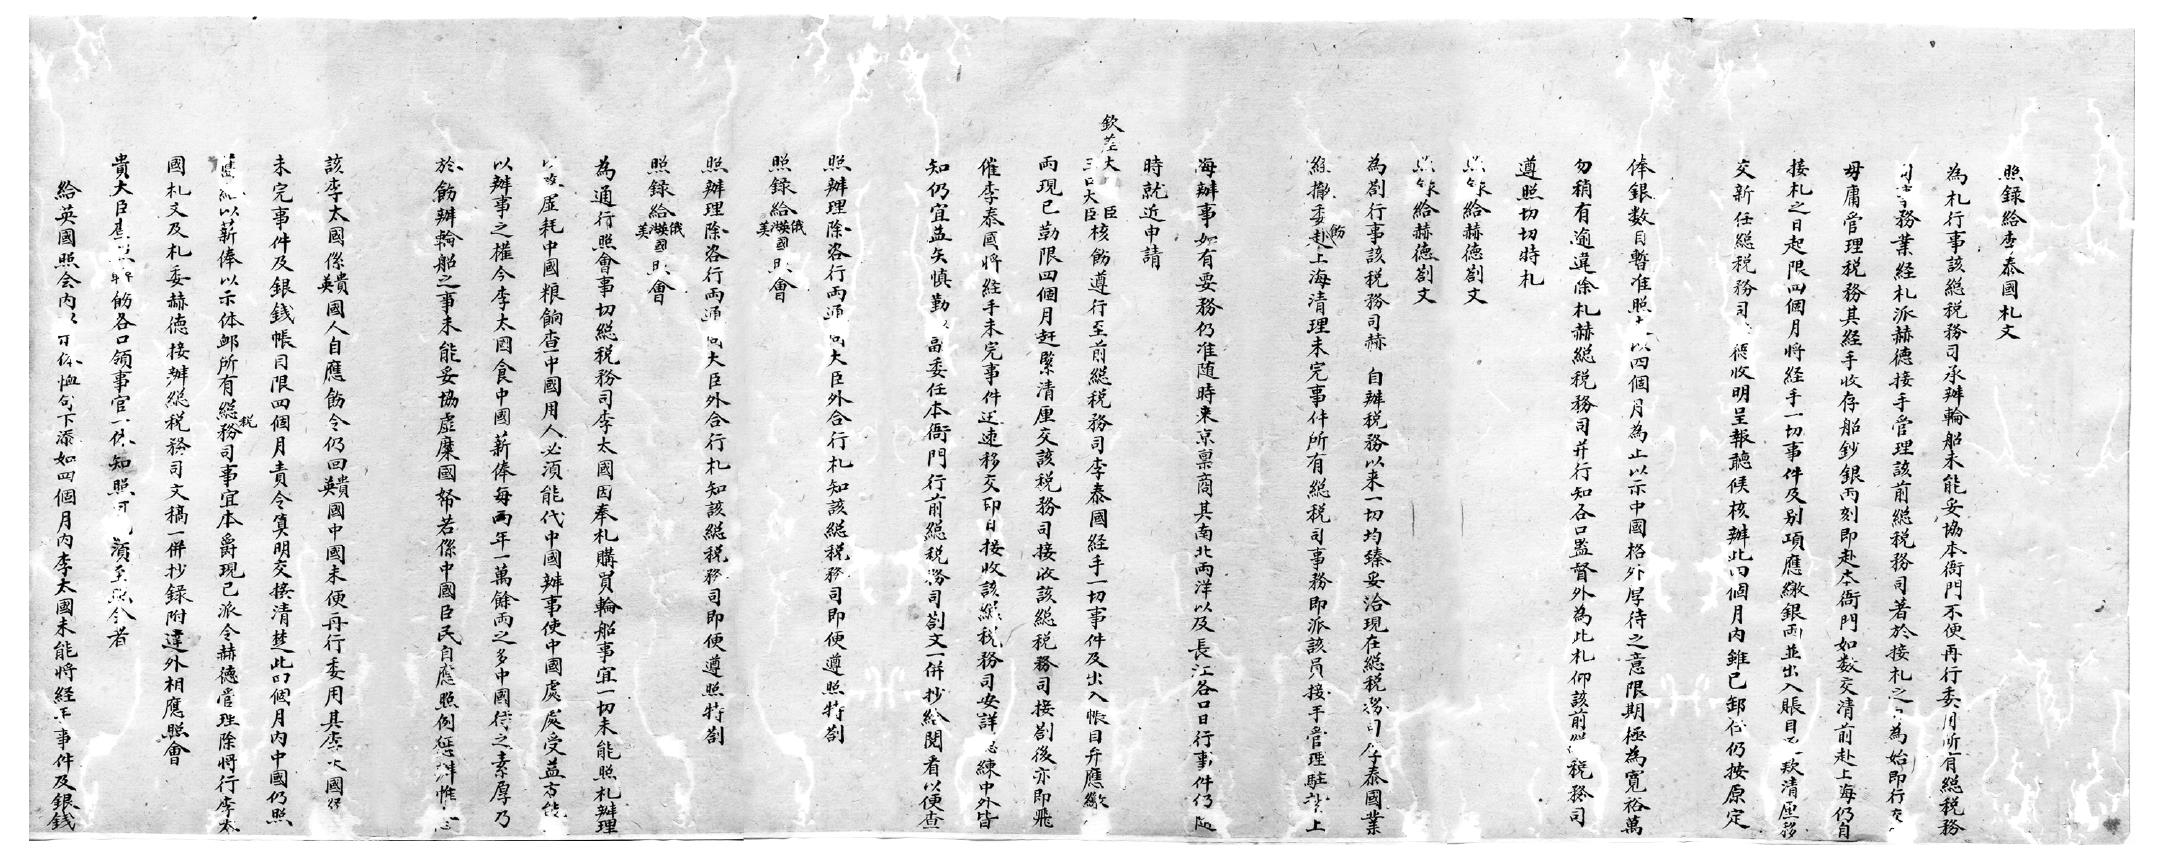 照錄給李泰國札文
為札行事該総税務司承辦輪船未能妥協本衙門不便再行委用所有総税務
司事務業経札派赫德接手管理該前総税務司著於接札之日為始即行交
毋庸管理税務其経手收存船鈔銀両刻即赴本衙門如数交清前赴上海仍自
接札之日起限四個月将経手一切事件及别項應繳銀両並出入賬目一一致清厘移
交新任総税務司赫德收明呈報聽候核辦此四個月内雖已卸任仍按原定
俸銀数目暫准照支以四個月為止以示中國格外厚待之意限期極為寬裕萬
勿稍有逾違除札赫総税務司并行知各口監督外為此札仰該前総税務司
遵照切切特札
照錄給赫德劄文
照錄給赫德劄文
為劄行事該税務司赫 自辦税務以来一切均臻妥洽現在総税務司李泰國業
経撤委飭赴上海清理未完事件所有総税司事務即派該員接手管理駐劄上
海辦事如有要務仍准随時来京禀商其南北両洋以及長江各口日行事件仍随
時就近申請
欽差大臣
三口大臣核飭遵行至前総税務司李泰國経手一切事件及出入賬目并應繳
両現已勒限四個月赶緊清厘交該税務司接收該総税務司接劄後亦即飛
催李泰國将経手未完事件迅速移交即日接收該総税務司安詳練中外皆
知仍宜益矢慎勤以副委任本衙門行前総税務司劄文一併抄給閲看以便查
照辦理除咨行両通商大臣外合行札知該総税務司即便遵照特劄
照錄給俄英法美國照會
照辦理除咨行両通商大臣外合行札知該総税務司即便遵照特劄
照錄給俄英法美國照會
為通行照會事切総税務司李太國因奉札購買輪船事宜一切未能照札辦理
以致虚耗中國粮餉查中國用人必須能代中國辦事使中國處處受益方能
以辦事之權今李太國食中國薪俸每両年一萬餘両之多中國待之素厚乃
於飭辦輪船之事未能妥協虚糜國帑若係中國臣民自應照例懲辦惟念
該李太國係英貴國人自應飭令仍回英貴國中國未便再行委用其李太國經
未完事件及銀銭帳目限四個月責令算明交接清楚此四個月内中國仍照
舊給以薪俸以示体卹所有総税務司事宜本爵現已派令赫德管理除将行李太
國札文及札委赫德接辦総税務司文稿一併抄録附達外相應照會
貴大臣查照轉飭各口領事官一体知照可也須至照會者
給英國照会内以示体恤句下添如四個月内李太國未能将経手事件及銀銭